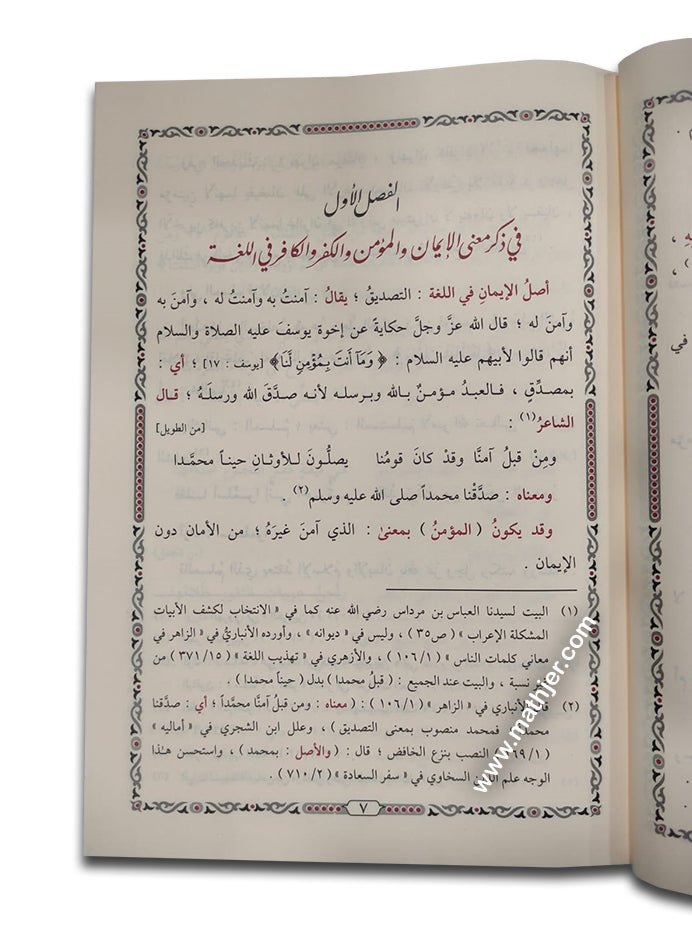 الفصل الأول
في ذكر معنى الإيمان والمؤمن والكفر والكافر في اللغة
أصلُ الإيمانِ في اللغة : التصديقُ ؛ يقالُ : آمنتُ به وآمنتُ له ، وآمنَ به
وآمنَ له ؛ قال الله عزَّ وجلَّ حكايةً عن إخوة يوسفَ عليه الصلاة والسلام
أنهم قالوا لأبيهم عليه السلام : ﴿ وَمَا أَنتَ بِمُؤْمِنٍ لَّنَا﴾ [يوسف : ١٧] ؛ أي :
بمصدِّقٍ ، فـالعبدُ مـؤمـنٌ بـالله وبـرسلـه لأنـه صدَّقَ الله ورسلَـهُ ؛ قـال
الشاعرُ(١) : [من الطويل]
ومِنْ قبلُ آمنَّا وقدْ كانَ قومُنا يصلُّـونَ لـلأوثـانِ حيـناً محمَّـدا
ومعناه : صدَّقْنا محمداً صلى الله عليه وسلم(٢) .
وقد يكونُ ( المؤمنُ ) بمعنىٰ : الذي آمنَ غيرَهُ ؛ من الأمان دون
الإيمان .
(١) البيت لسيدنا العباس بن مرداس رضي الله عنه كما في « الانتخاب لكشف الأبيات
المشكلة الإعراب » ( ص٣٥ ) ، وليس في « ديوانه » ، وأورده الأنباريُّ في « الزاهر في
معاني كلمات الناس » ( ١/ ١٠٦ ) ، والأزهري في « تهذيب اللغة » ( ١٥/ ٣٧١ ) من
نسبة ، والبيت عند الجميع : ( قبلُ محمدا ) بدل ( حيناً محمدا ) .
(٢) الأنباري في « الزاهر » ( ١/ ١٠٦ ) : ( معناه : ومن قبلُ آمنَّا محمَّداً ؛ أي : صدَّقنا
محمداً ، فمحمد منصوب بمعنى التصديق ) ، وعلل ابن الشجري في « أماليه »
النصب بنزع الخافض ؛ قال : ( والأصل : بمحمد ) ، واستحسن هـٰذا
الوجه علم الدين السخاوي في « سفر السعادة » ( ٢/ ٧١٠ ) .
٧
www.mathjer.com